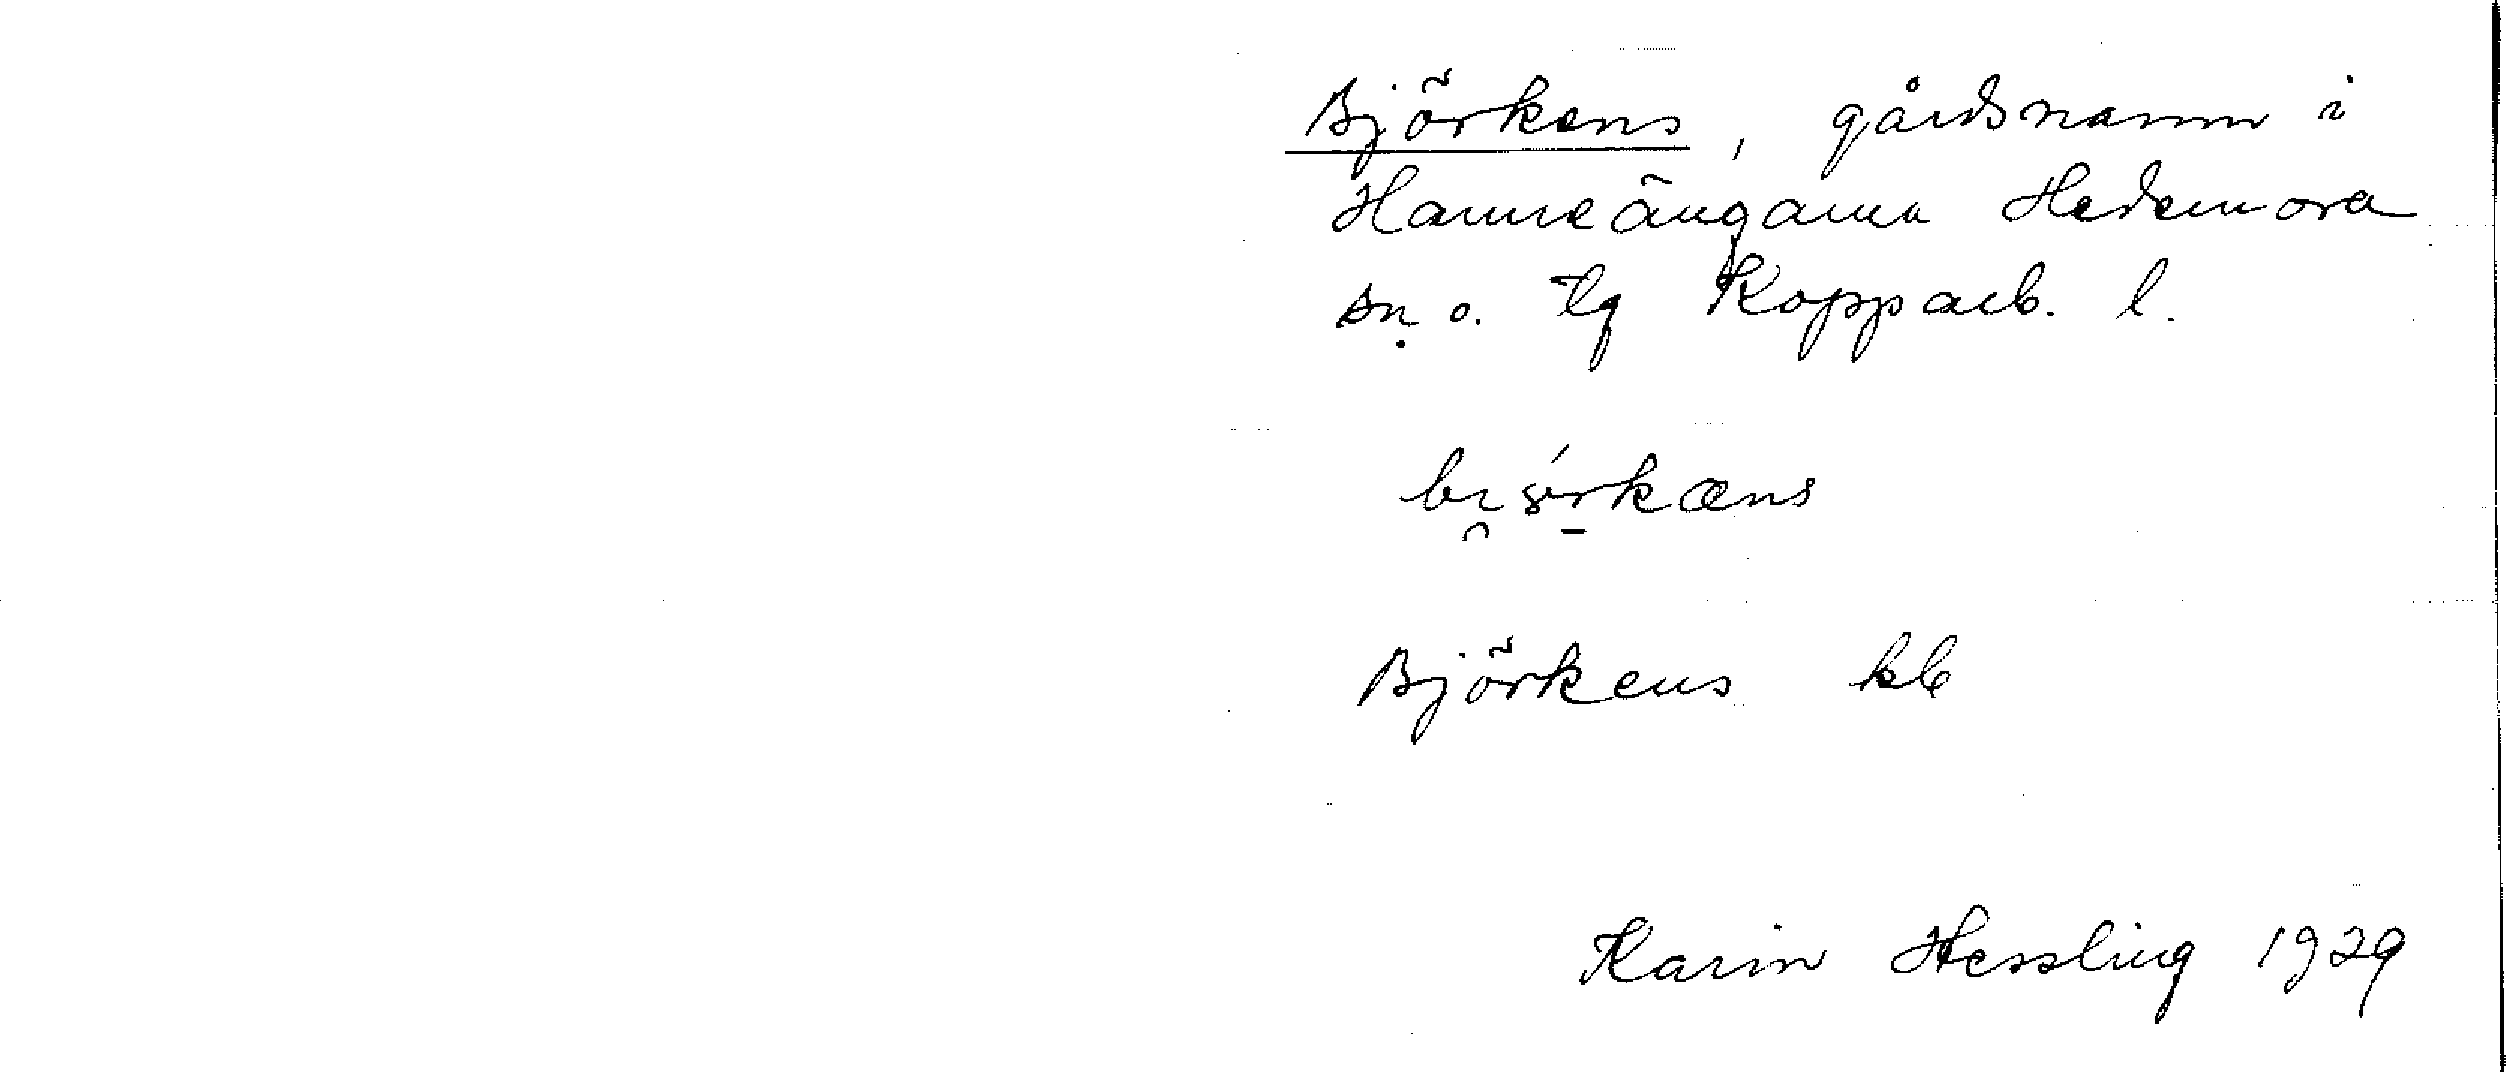 Björkens, gårdsnamn i
Hamreängarna Hedemora
sn o. tg Kopparb. l.
Björkens kb
Karin Hessling 1929